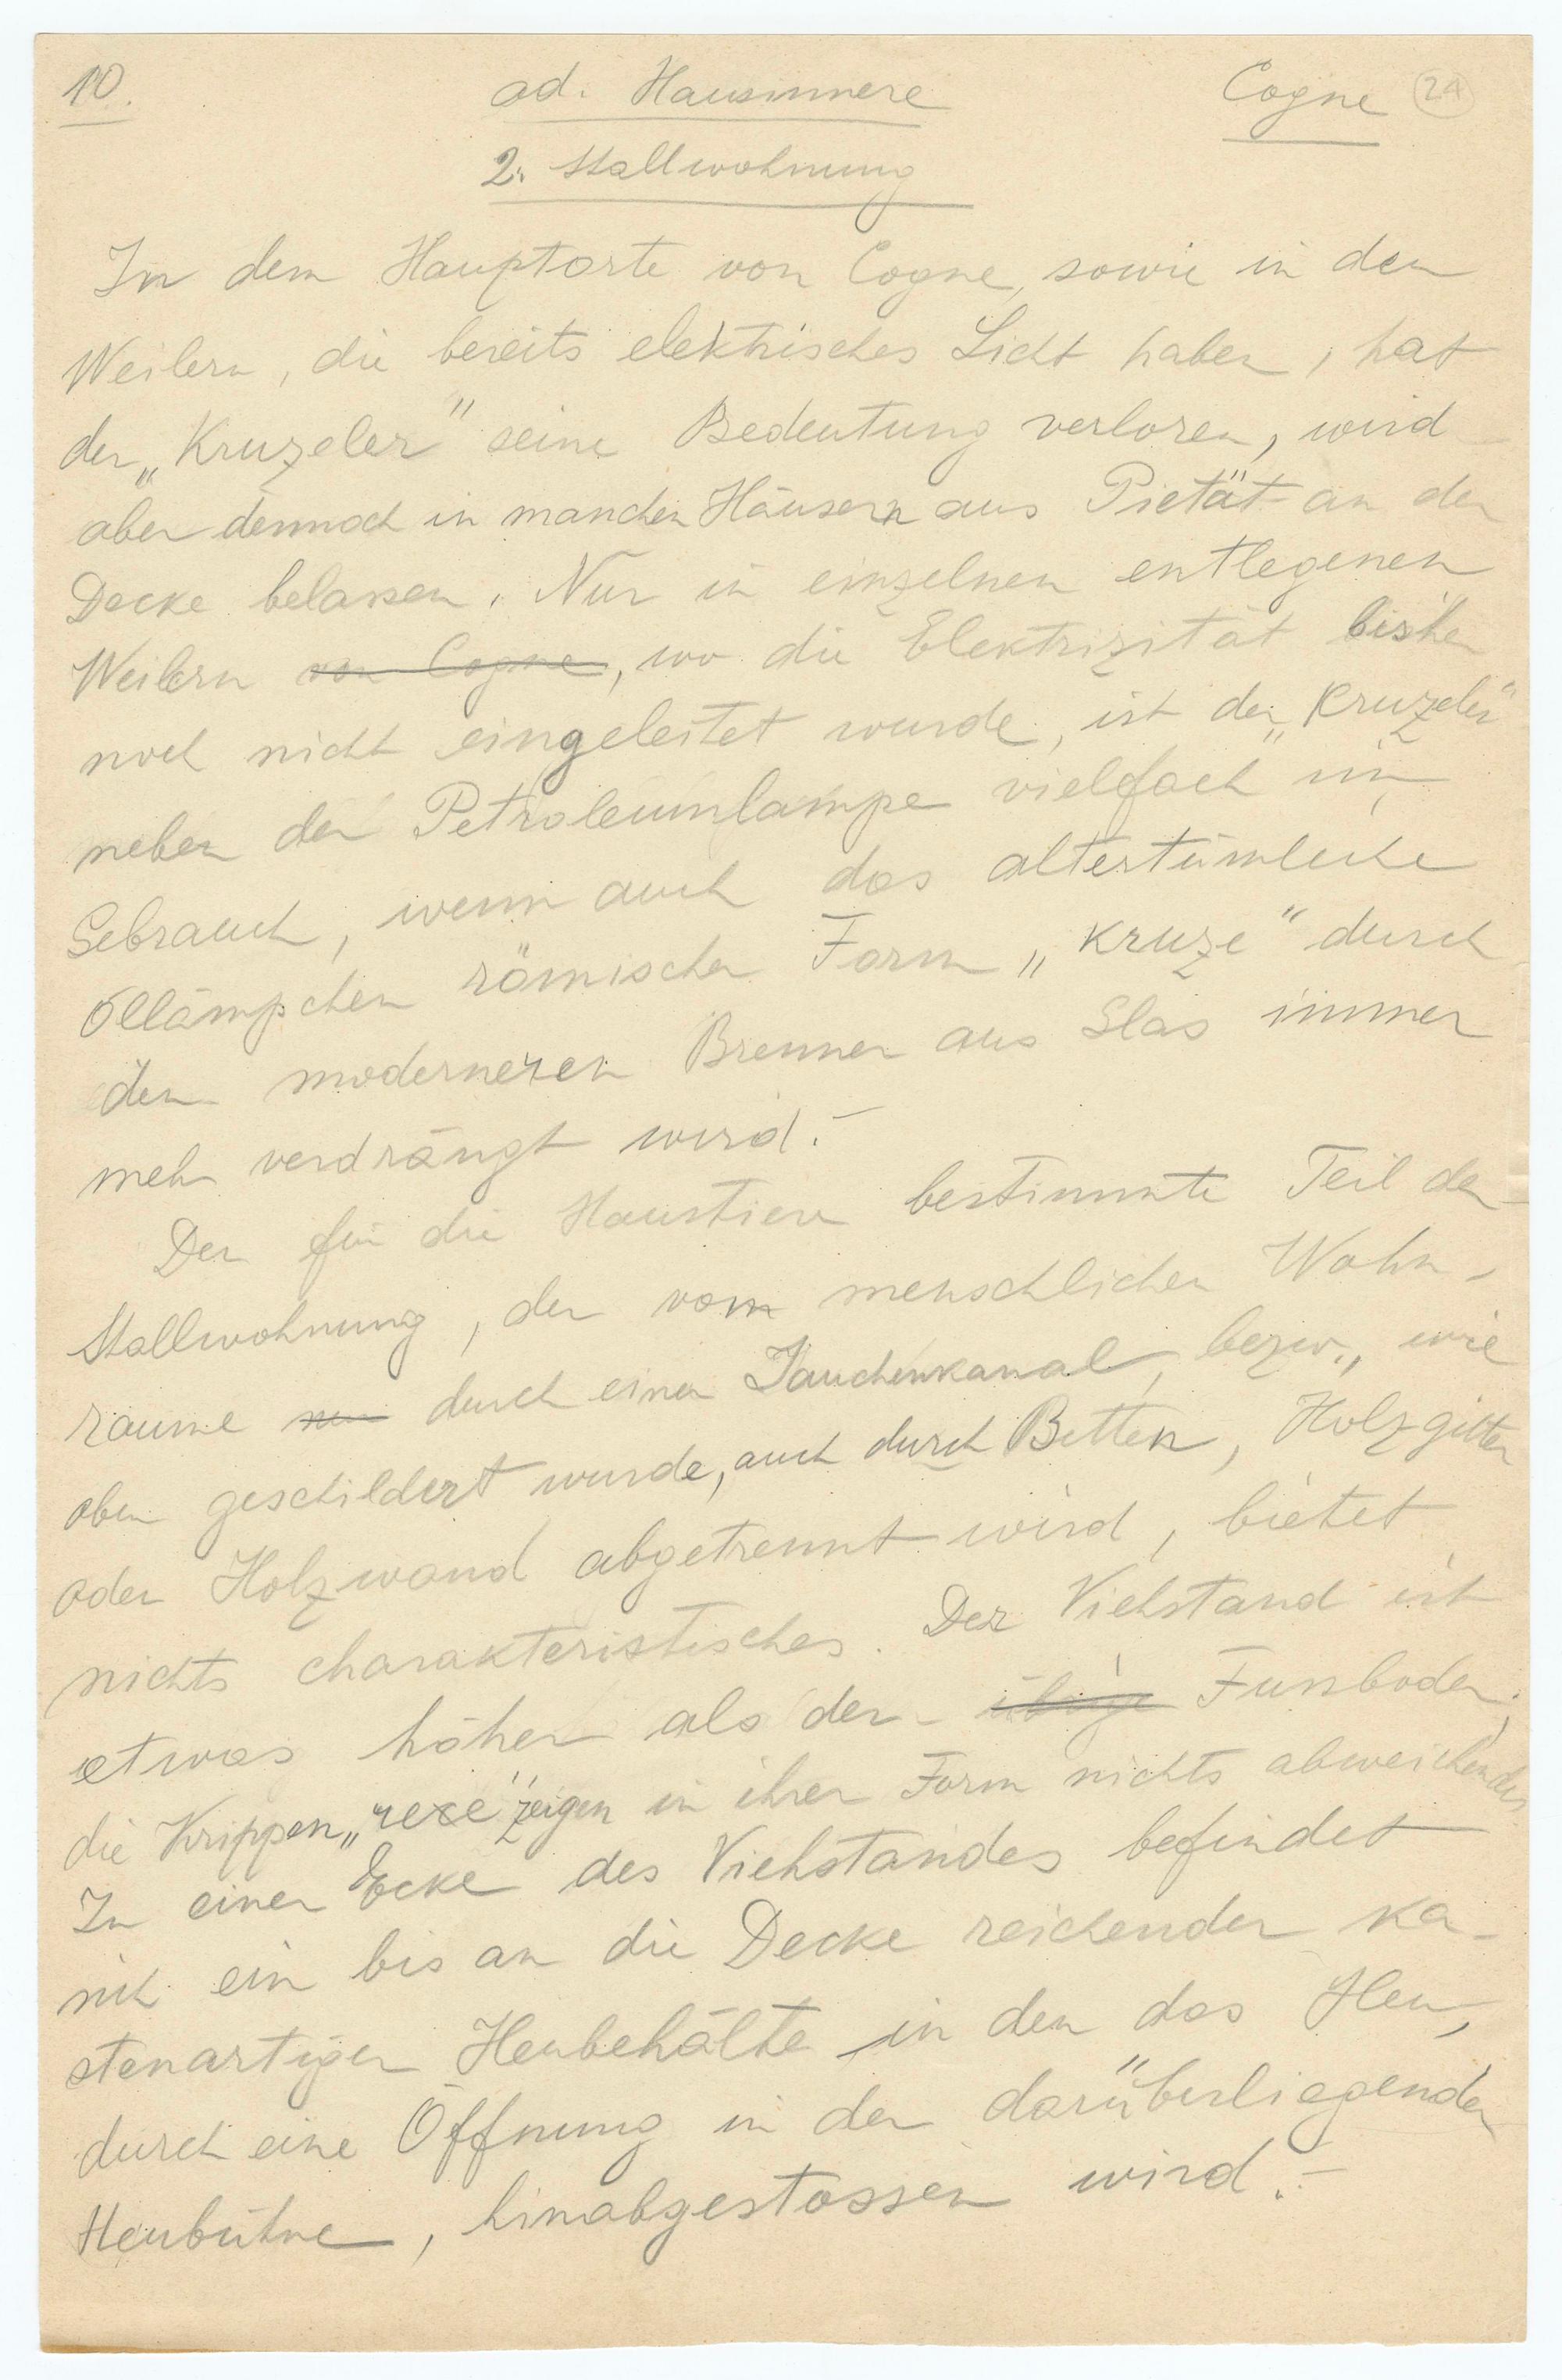 10. ad. Hausinnere Cogne 24
2. Stallwohnung
In dem Hauptorte von Cogne, sowie in den
Weilern, die bereits elektrisches Licht haben, hat
der „Kruzeler" seine Bedeutung verloren, wird
aber dennoch in manchen Häusern aus Pietät an der
Decke belassen. Nur in einzelnen entlegenen
Weilern von Cogne, wo die Elektrizität bisher
noch nicht eingeleitet wurde, ist der „Kruzeler"
neben der Petroleumlampe vielfach im
Gebrauch, wenn auch das altertümliche
Öllämpchen römischer Form „kruze" durch
den moderneren Brenner aus Glas immer
mehr verdrängt wird.–
Der für die Haustiere bestimmte Teil der
Stallwohnung, der vom menschlichen Wohn-
raume nur durch einen Jauchenkanal, bezw., wie
oben geschildert wurde, auch durch Betten, Holzgitter
oder Holzwand abgetrennt wird, bietet
nichts charakteristisches. Der Viehstand ist
etwas höher als der übrige Fussboden,
die Krippen „reze" zeigen in ihrer Form nichts abweichendes
In einer Ecke des Viehstandes befindet
sich ein bis an die Decke reichender ka-
stenartiger Heubehälter in den das Heu,
durch eine Öffnung in der darüberliegenden
Heubühne, hinabgestossen wird.–